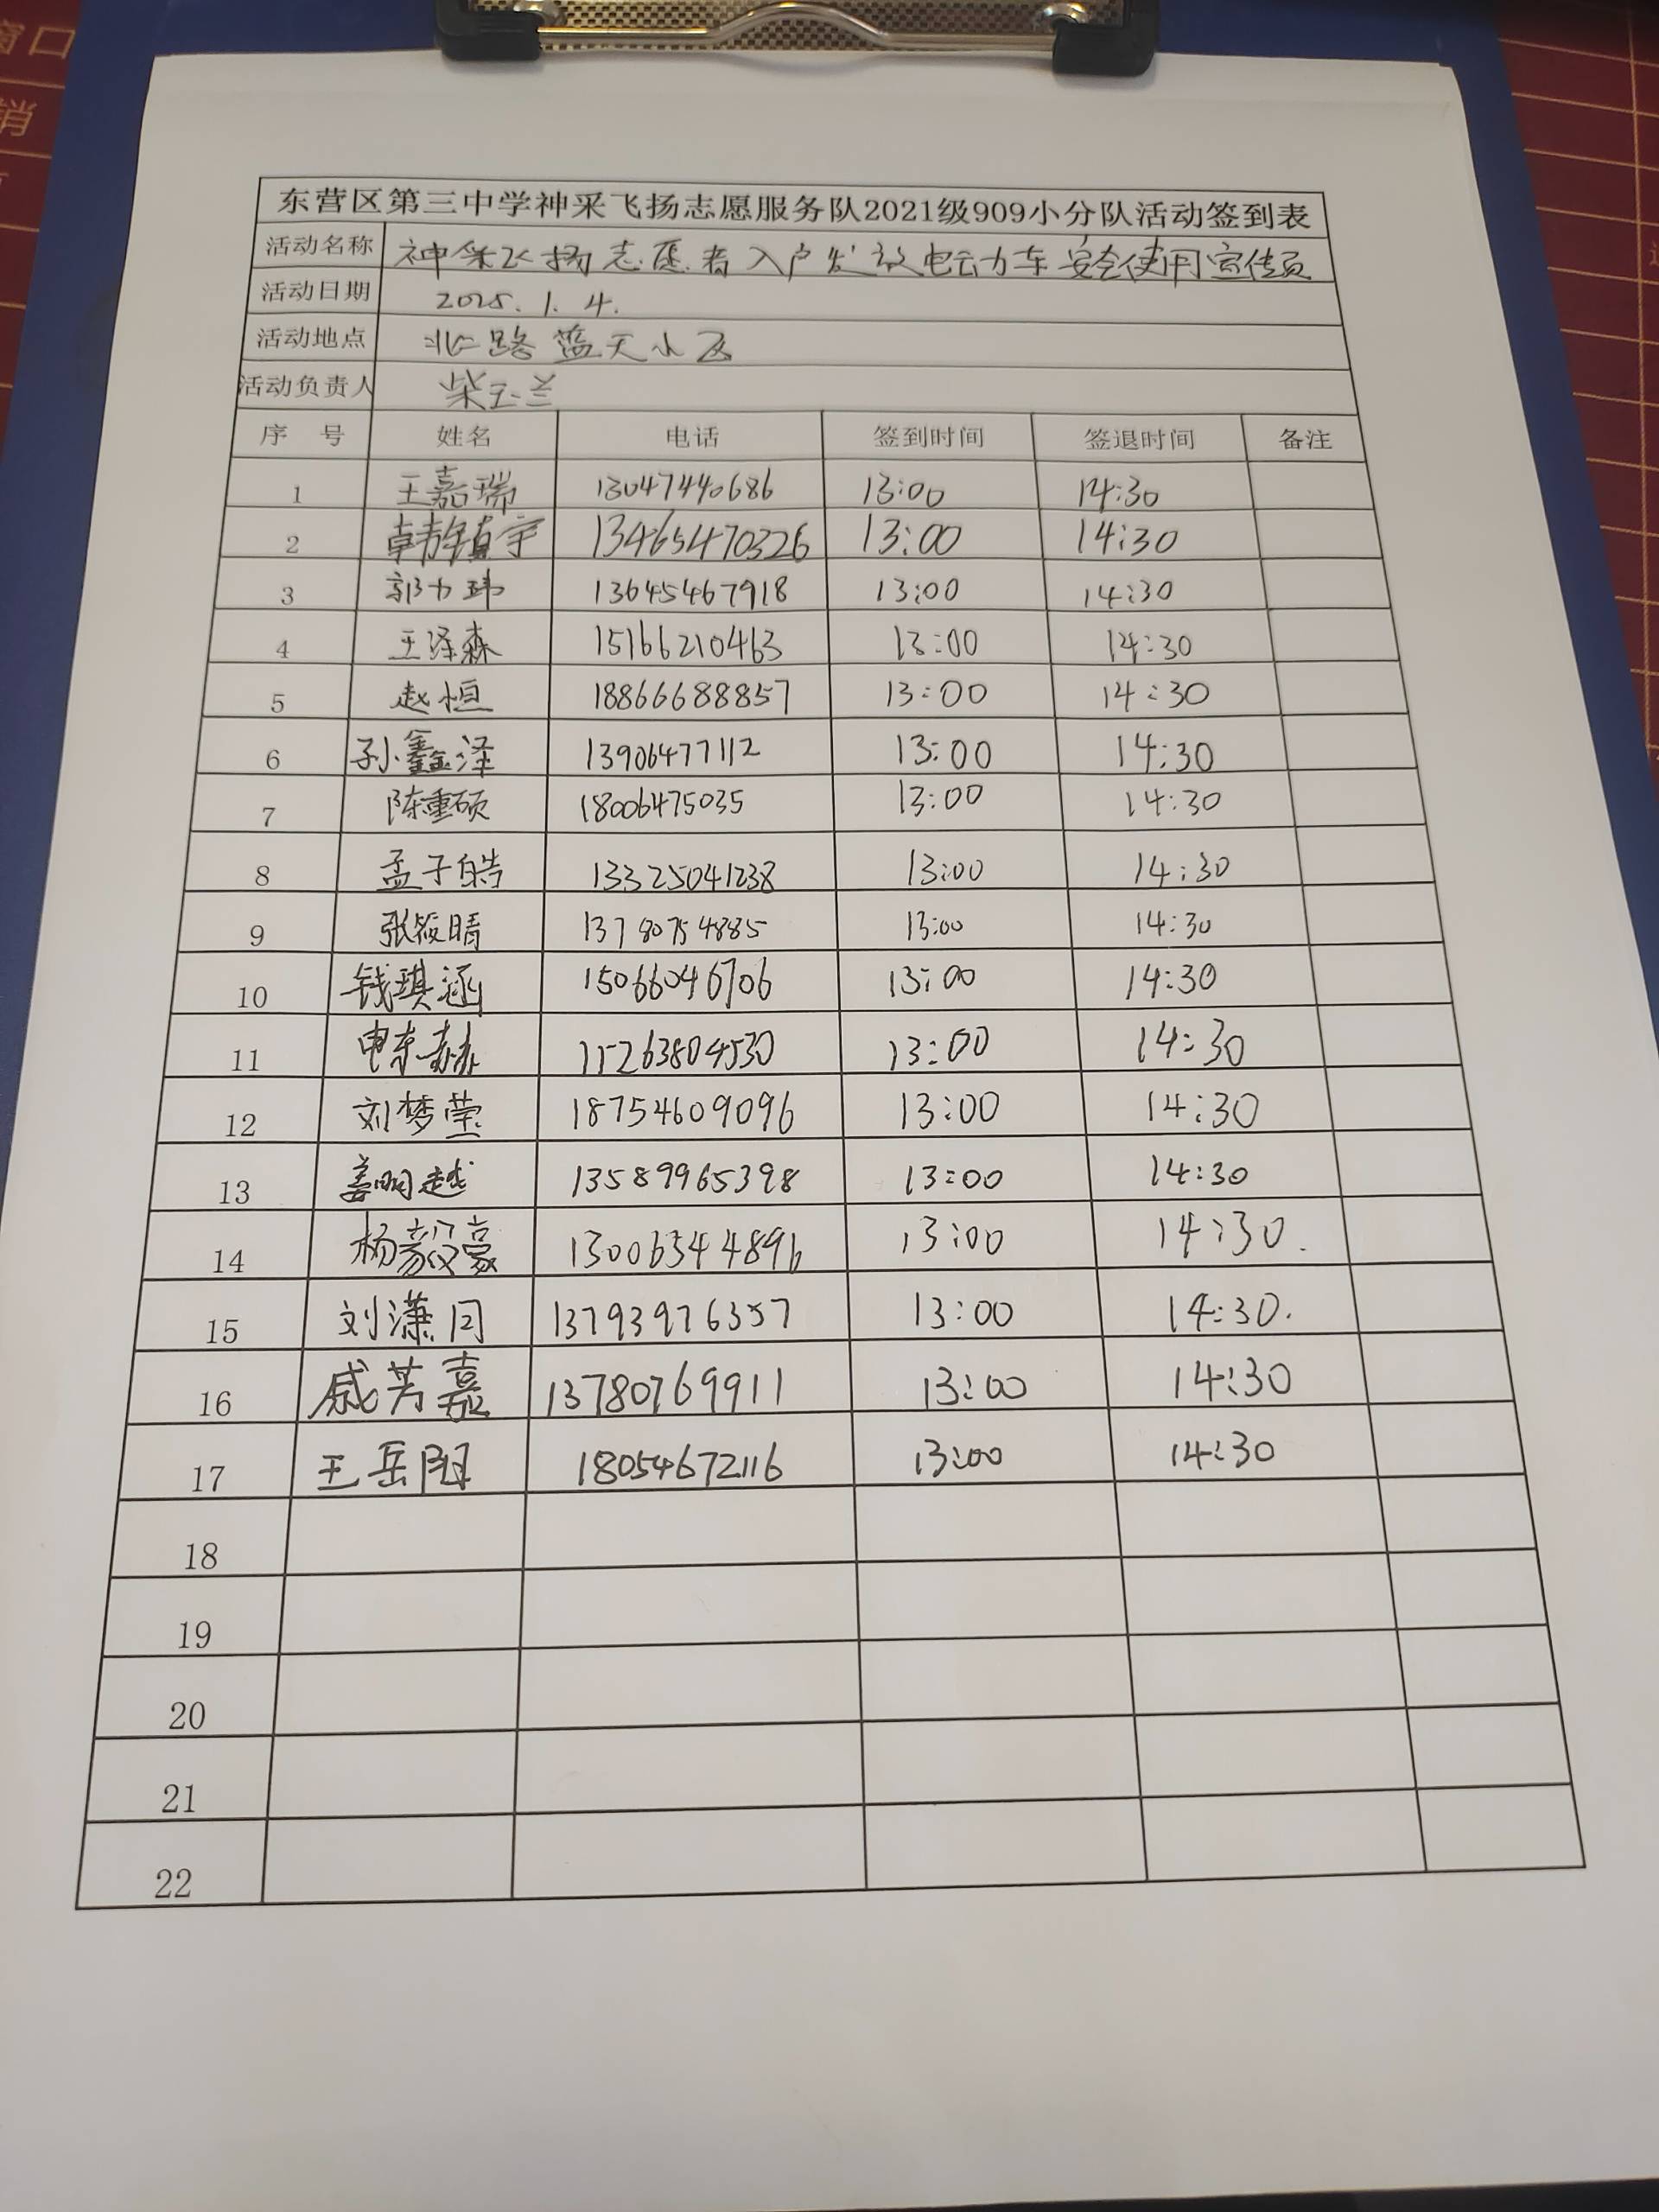 窗口
销
东营区第三中学神采飞扬志愿服务队2021级909小分队活动签到表
活动名称 神采飞扬志愿者入户发放电动车安全使用宣传页
活动日期 2025.1.4.
活动地点 北二路蓝天小区
活动负责人 柴玉兰
序 号 姓名 电话 签到时间 签退时间 备注
1 王嘉瑞 13047440686 13:00 14:30
2 韩镇宇 13465470326 13:00 14:30
3 郭力玮 13645467918 13:00 14:30
4 王泽森 15166210463 13:00 14:30
5 赵恒 18866688857 13:00 14:30
6 孙鑫泽 13906477112 13:00 14:30
7 陈重硕 18006475035 13:00 14:30
8 孟子皓 13325041238 13:00 14:30
9 张筱晴 13780754885 13:00 14:30
10 钱琪涵 15066046706 13:00 14:30
11 申东赫 15263804530 13:00 14:30
12 刘梦莹 18754609096 13:00 14:30
13 姜明越 13589965398 13:00 14:30
14 杨毅豪 13006544896 13:00 14:30.
15 刘潇同 13793976357 13:00 14:30.
16 戚芳嘉 13780769911 13:00 14:30
17 王岳阳 18054672116 13:00 14:30
18
19
20
21
22